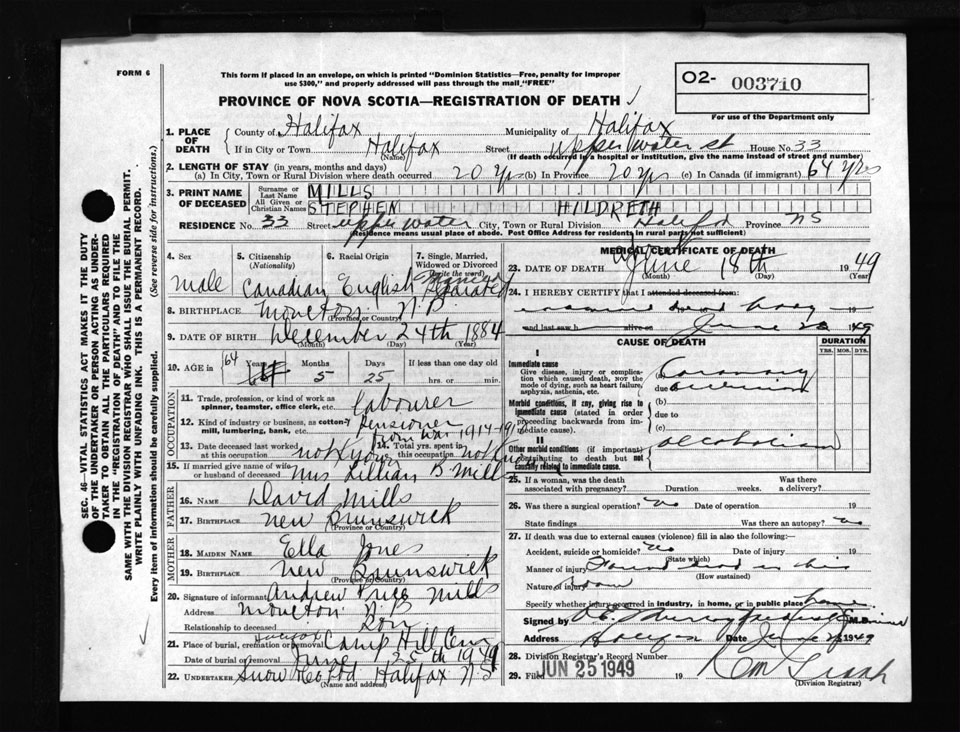 FORM 6
This form if placed in an envelope, on which is printed "Dominion Statistics—Free, penalty for improper
use $300," and properly addressed will pass through the mail "FREE"
O2- 003710
For use of the Department only
PROVINCE OF NOVA SCOTIA—REGISTRATION OF DEATH
SEC. 46—VITAL STATISTICS ACT MAKES IT THE DUTY
OF THE UNDERTAKER OR PERSON ACTING AS UNDER-
TAKER TO OBTAIN ALL THE PARTICULARS REQUIRED
IN THE "REGISTRATION OF DEATH" AND TO FILE THE
SAME WITH THE DIVISION REGISTRAR WHO SHALL ISSUE THE BURIAL PERMIT.
WRITE PLAINLY WITH UNFADING INK. THIS IS A PERMANENT RECORD.
Every item of information should be carefully supplied. (See reverse side for instructions.)
1. PLACE OF DEATH
County of Halifax Municipality of Halifax
If in City or Town Halifax Street Upper Water St House No. 33
(Name) (If death occurred in a hospital or institution, give the name instead of street and number)
2. LENGTH OF STAY (in years, months and days)
(a) In City, Town or Rural Division where death occurred 20 yrs (b) In Province 20 yrs (c) In Canada (if immigrant) 64 yrs
3. PRINT NAME OF DECEASED
Surname or Last Name MILLS
All Given or Christian Names STEPHEN HILDRETH
RESIDENCE No. 33 Street Upper Water City, Town or Rural Division Halifax Province NS
(Residence means usual place of abode. Post Office Address for residents in rural parts not sufficient)
4. Sex 5. Citizenship (Nationality) 6. Racial Origin 7. Single, Married, Widowed or Divorced (write the word)
Male Canadian English Separated
8. BIRTHPLACE Moncton N.B
(Province or Country)
9. DATE OF BIRTH December 24th 1884
(Month) (Day) (Year)
10. AGE in 64 Years Months 5 Days 25 If less than one day old
hrs. or min.
OCCUPATION
11. Trade, profession, or kind of work as spinner, teamster, office clerk, etc. Labourer
12. Kind of industry or business, as cotton-mill, lumbering, bank, etc. Pensioner from War 1914-1918
13. Date deceased last worked at this occupation not known 14. Total yrs. spent in this occupation not known
15. If married give name of wife or husband of deceased Mrs Lillian B Mills
FATHER
16. NAME David Mills
17. BIRTHPLACE New Brunswick
(Province or Country)
MOTHER
18. MAIDEN NAME Ella Jones
19. BIRTHPLACE New Brunswick
(Province or Country)
20. Signature of informant Andrew Price Mills
Address Moncton N.B
Relationship to deceased Son
21. Place of burial, cremation or removal Halifax Camp Hill Cem
Date of burial or removal June 25th 1949
22. UNDERTAKER Snow & Co Ltd Halifax N.S
(Name and address)
MEDICAL CERTIFICATE OF DEATH
23. DATE OF DEATH June 18th 1949
(Month) (Day) (Year)
24. I HEREBY CERTIFY that I attended deceased from:
examined dead body 19
and last saw h alive on June 20 1949
CAUSE OF DEATH DURATION
YRS. MOS. DYS.
I
Immediate cause
Give disease, injury or complication which caused death, NOT the mode of dying, such as heart failure, asphyxia, asthenia, etc.
Coronary
due occlusion
Morbid conditions, if any, giving rise to immediate cause (stated in order proceeding backwards from immediate cause).
(b)
due to
(c)
II
Other morbid conditions (if important) contributing to death but not causally related to immediate cause.
alcoholism
25. If a woman, was the death associated with pregnancy? Duration weeks. Was there a delivery?
26. Was there a surgical operation? no Date of operation 19
State findings Was there an autopsy? no
27. If death was due to external causes (violence) fill in also the following:
Accident, suicide or homicide? no Date of injury 19
(State which)
Manner of injury Found dead in his
(How sustained)
Nature of injury room
Specify whether injury occurred in industry, in home, or in public place home
Signed by M.D.
Address Halifax Date June 1949
28. Division Registrar's Record Number
29. Filed JUN 25 1949 19
(Division Registrar)